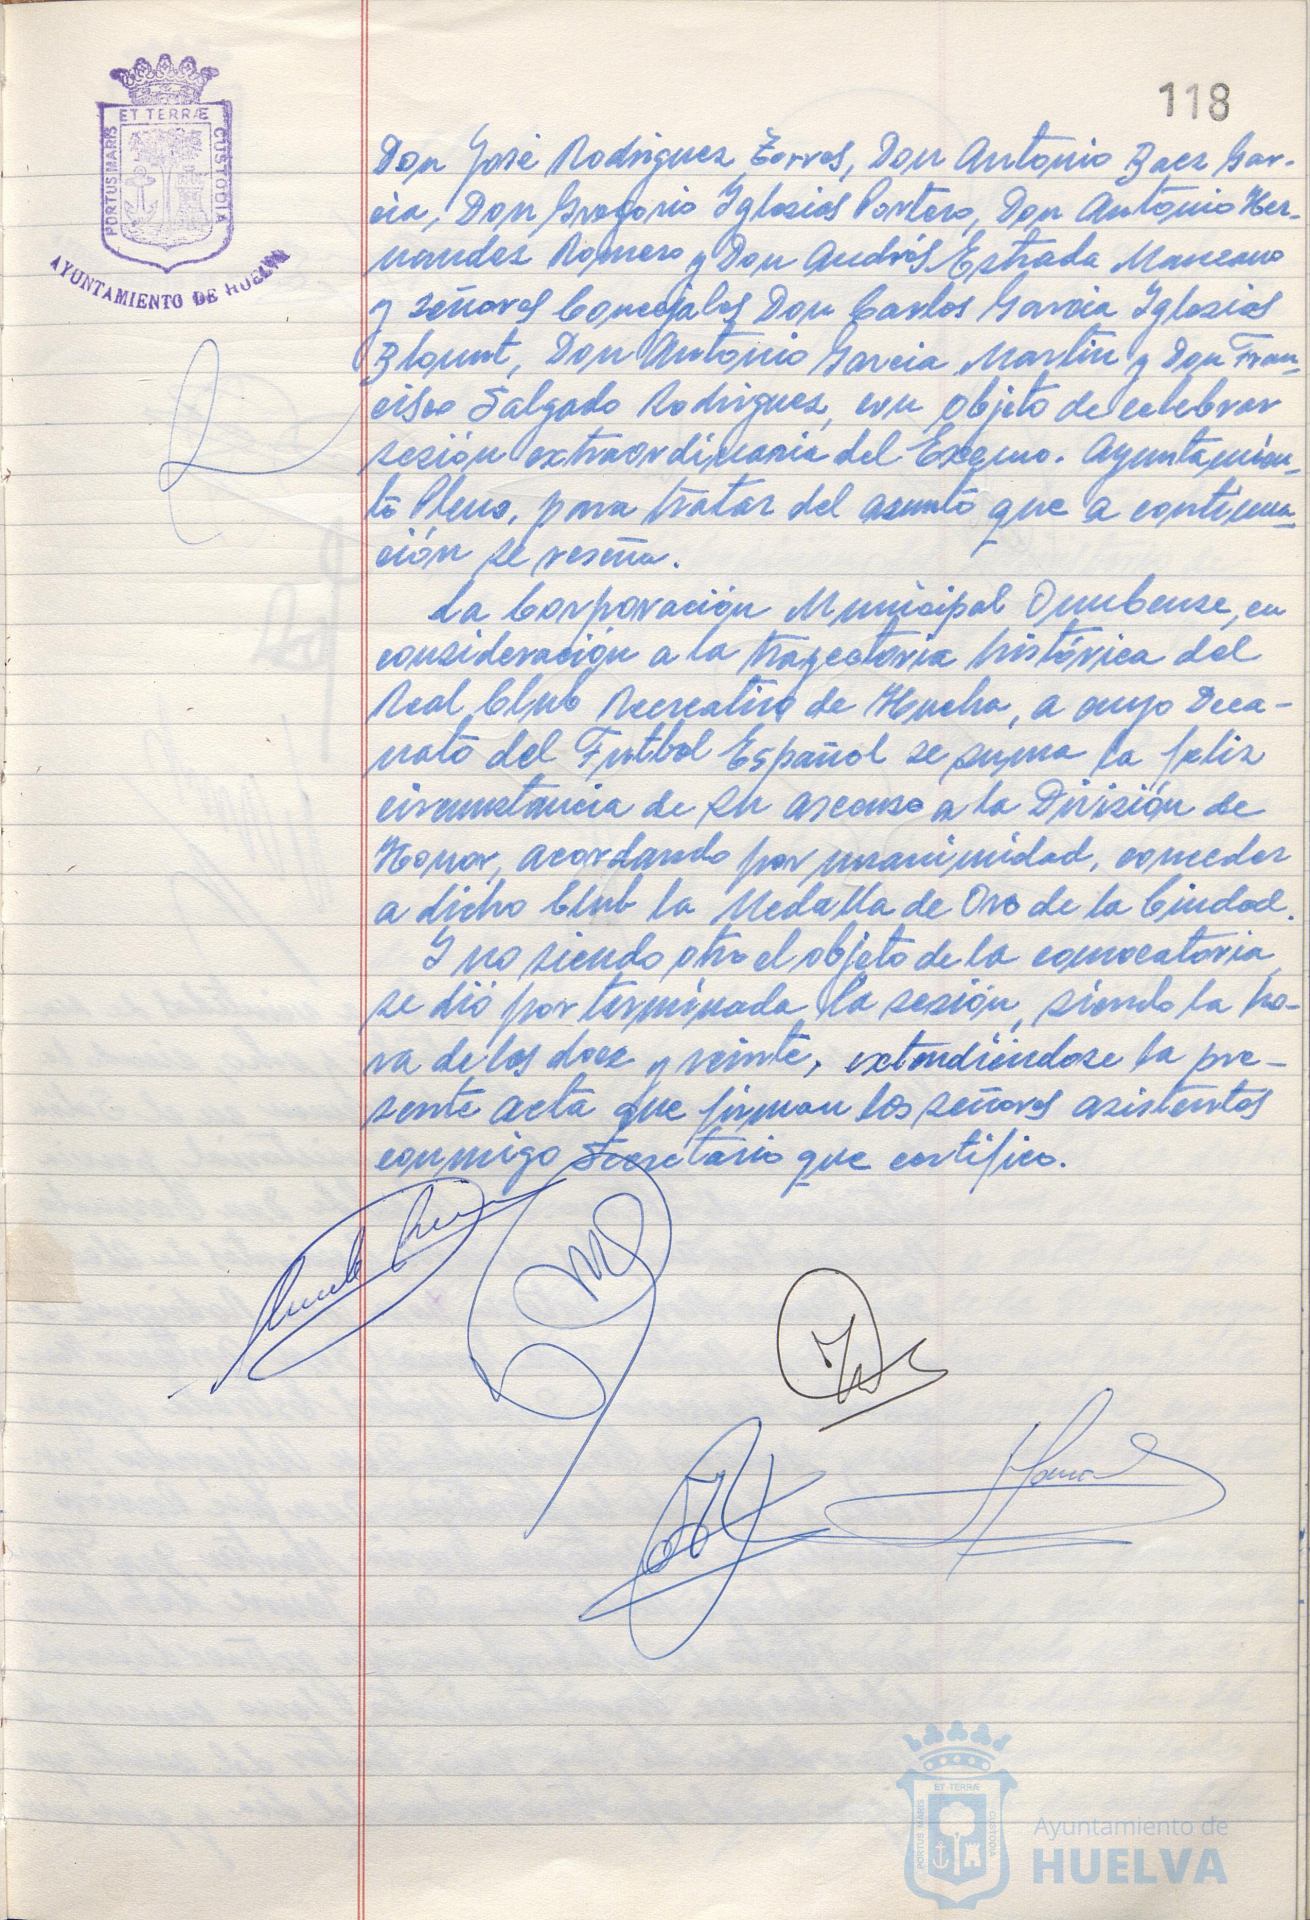 118
ET TERRÆ
PORTUS MARIS
CUSTODIA
AYUNTAMIENTO DE HUELVA
Don José Rodriguez Torres, Don Antonio Baez Gar-
cia, Don Gregorio Iglesias Portero, Don Antonio Her-
nandez Romero y Don Andrés Estrada Manzano
y señores Concejales Don Carlos Garcia Iglesias
Blount, Don Antonio Garcia Martin y Don Fran-
cisco Salgado Rodriguez, con objeto de celebrar
sesión extraordinaria del Excmo. Ayuntamien-
to Pleno, para tratar del asunto que a continua-
ción se reseña.
La Corporación Municipal Onubense, en
consideración a la trayectoria histórica del
Real Club Recreativo de Huelva, a cuyo Deca-
nato del Futbol Español se suma la feliz
circunstancia de su ascenso a la División de
Honor, acordando por unanimidad, conceder
a dicho Club la Medalla de Oro de la Ciudad.
Y no siendo otro el objeto de la convocatoria
se dió por terminada la sesión, siendo la ho-
ra de los doce y veinte, extendiéndose la pre-
sente acta que firman los señores asistentes
conmigo Secretario que certifico.
ET TERRÆ
PORTUS MARIS
CUSTODIA
Ayuntamiento de
HUELVA